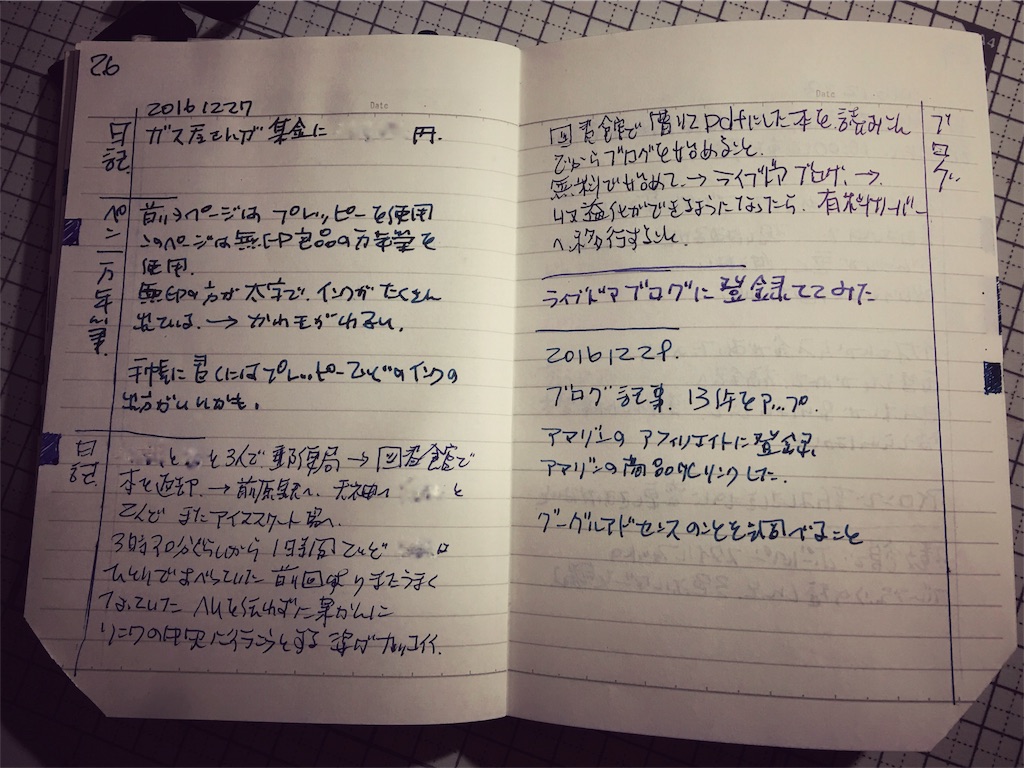 26
Date
2016 12 27
日記
ガス屋さんが集金に 円.
ペン 万年筆
前のページは プレッピーを使用
このページは無印良品の万年筆を
使用.
無印の方が太字で、インクがたくさん
出ている. → かわきがわるい.
手帳に書くにはプレッピーていどのインクの
出方がいいかも.
日記
と と3人で 郵便局 → 図書館で
本を返却. → 前原駅へ. 天神へ と
でんで またアイススケート場へ.
3時30分ぐらいから 1時間ていど は
ひとりですべっていた 前回よりまたうまく
なっていた 人目を気にせずに果かんに
リンクの中央に行こうとする 姿がカッコイイ.
Date
ブログ
図書館で 借りてpdfにした本を 読みこん
でからブログを始めること.
無料で始めて. → ライブドアブログ. →
収益化ができるようになったら、有料サーバー
へ移行すること.
ライブドアブログに登録してみた
2016 12 28.
ブログ記事. 13件をアップ.
アマゾンの アフィリエイトに登録.
アマゾンの商品化リンクした.
グーグルアドセンスのことを調べること